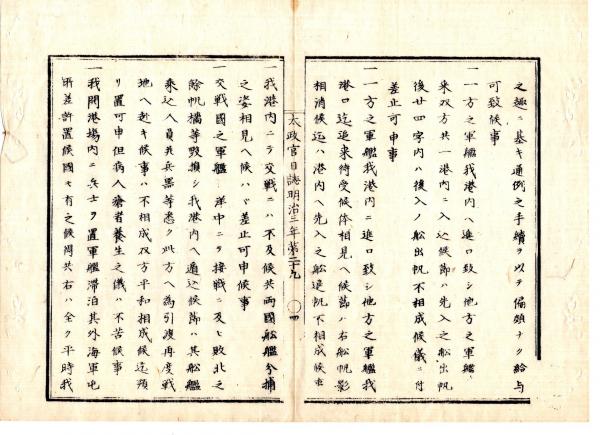 之趣ニ基キ通例之手續ヲ以テ偏頗ナク給与
可致候事
一一方之軍艦我港内ヘ進口致シ他方之軍艦
来双方共一港内ニ入込候節ハ先入之船出帆
後廿四字内ハ後入ノ船出帆不相成候儀ニ付
差止可申事
一一方之軍艦我港内ニ進口致シ他方之軍艦我
港口迄追来待受候体相見ヘ候節ハ右船帆影
相消候迄ハ港内ヘ先入之船追帆不相成候事
太政官日誌明治三年第三十九 四
一我港内ニテ交戦ニハ不及候共両國船艦ヲ捕
之姿相見ヘ候ハヾ差止可申候事
一交戦國之軍艦洋中ニヲ接戦ニ及ヒ敗北之
餘帆檣等毀損シ我港内ヘ遁込候節ハ其船艦
乗込人員共兵器等悉ク此方ヘ為引渡再度戦
地ヘ赴キ候事ハ不相成双方平和相成候迄預
リ置可申但病人療者養生之儀ハ不苦候事
一我開港場内ニ兵士ヲ置軍艦滞泊其外海軍屯
所差許置候國モ有之候得共右ハ全ク平時我